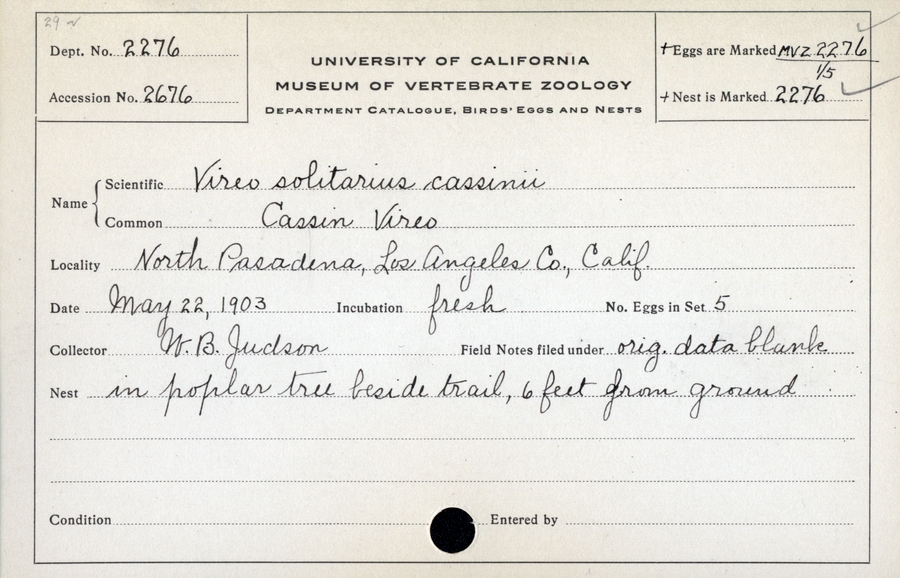 29
Dept. No. 2276
Accession No. 2676
UNIVERSITY OF CALIFORNIA
MUSEUM OF VERTEBRATE ZOOLOGY
DEPARTMENT CATALOGUE, BIRDS' EGGS AND NESTS
+Eggs are Marked MVZ 2276
1/5
+Nest is Marked 2276
Name
Scientific Vireo solitarius cassinii
Common Cassin Vireo
Locality North Pasadena, Los Angeles Co., Calif.
Date May 22, 1903 Incubation fresh No. Eggs in Set 5
Collector W. B. Judson Field Notes filed under orig. data blank
Nest in poplar tree beside trail, 6 feet from ground
Condition Entered by